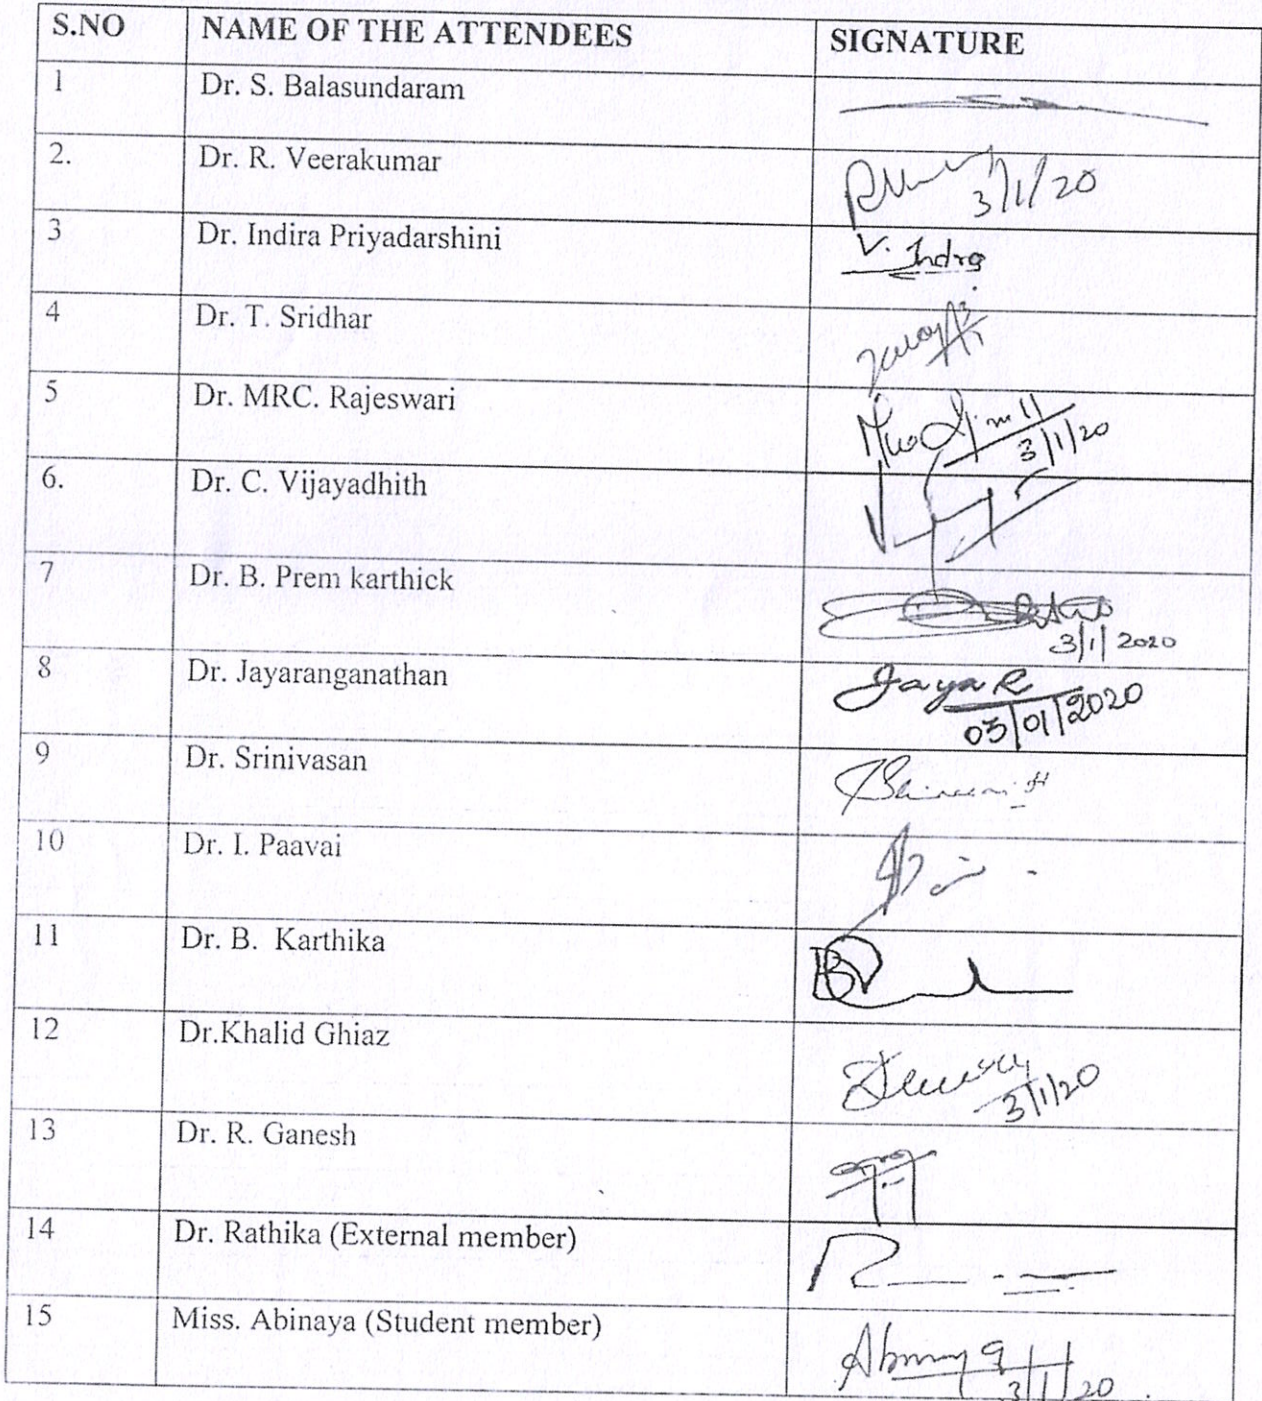 S.NO NAME OF THE ATTENDEES SIGNATURE
1 Dr. S. Balasundaram
2. Dr. R. Veerakumar 3/1/20
3 Dr. Indira Priyadarshini V. Indra
4 Dr. T. Sridhar
5 Dr. MRC. Rajeswari 3/1/20
6. Dr. C. Vijayadhith
7 Dr. B. Prem karthick 3/1/2020
8 Dr. Jayaranganathan Jaya R
03/01/2020
9 Dr. Srinivasan
10 Dr. I. Paavai
11 Dr. B. Karthika
12 Dr.Khalid Ghiaz 3/1/20
13 Dr. R. Ganesh
14 Dr. Rathika (External member)
15 Miss. Abinaya (Student member) 3/1/20